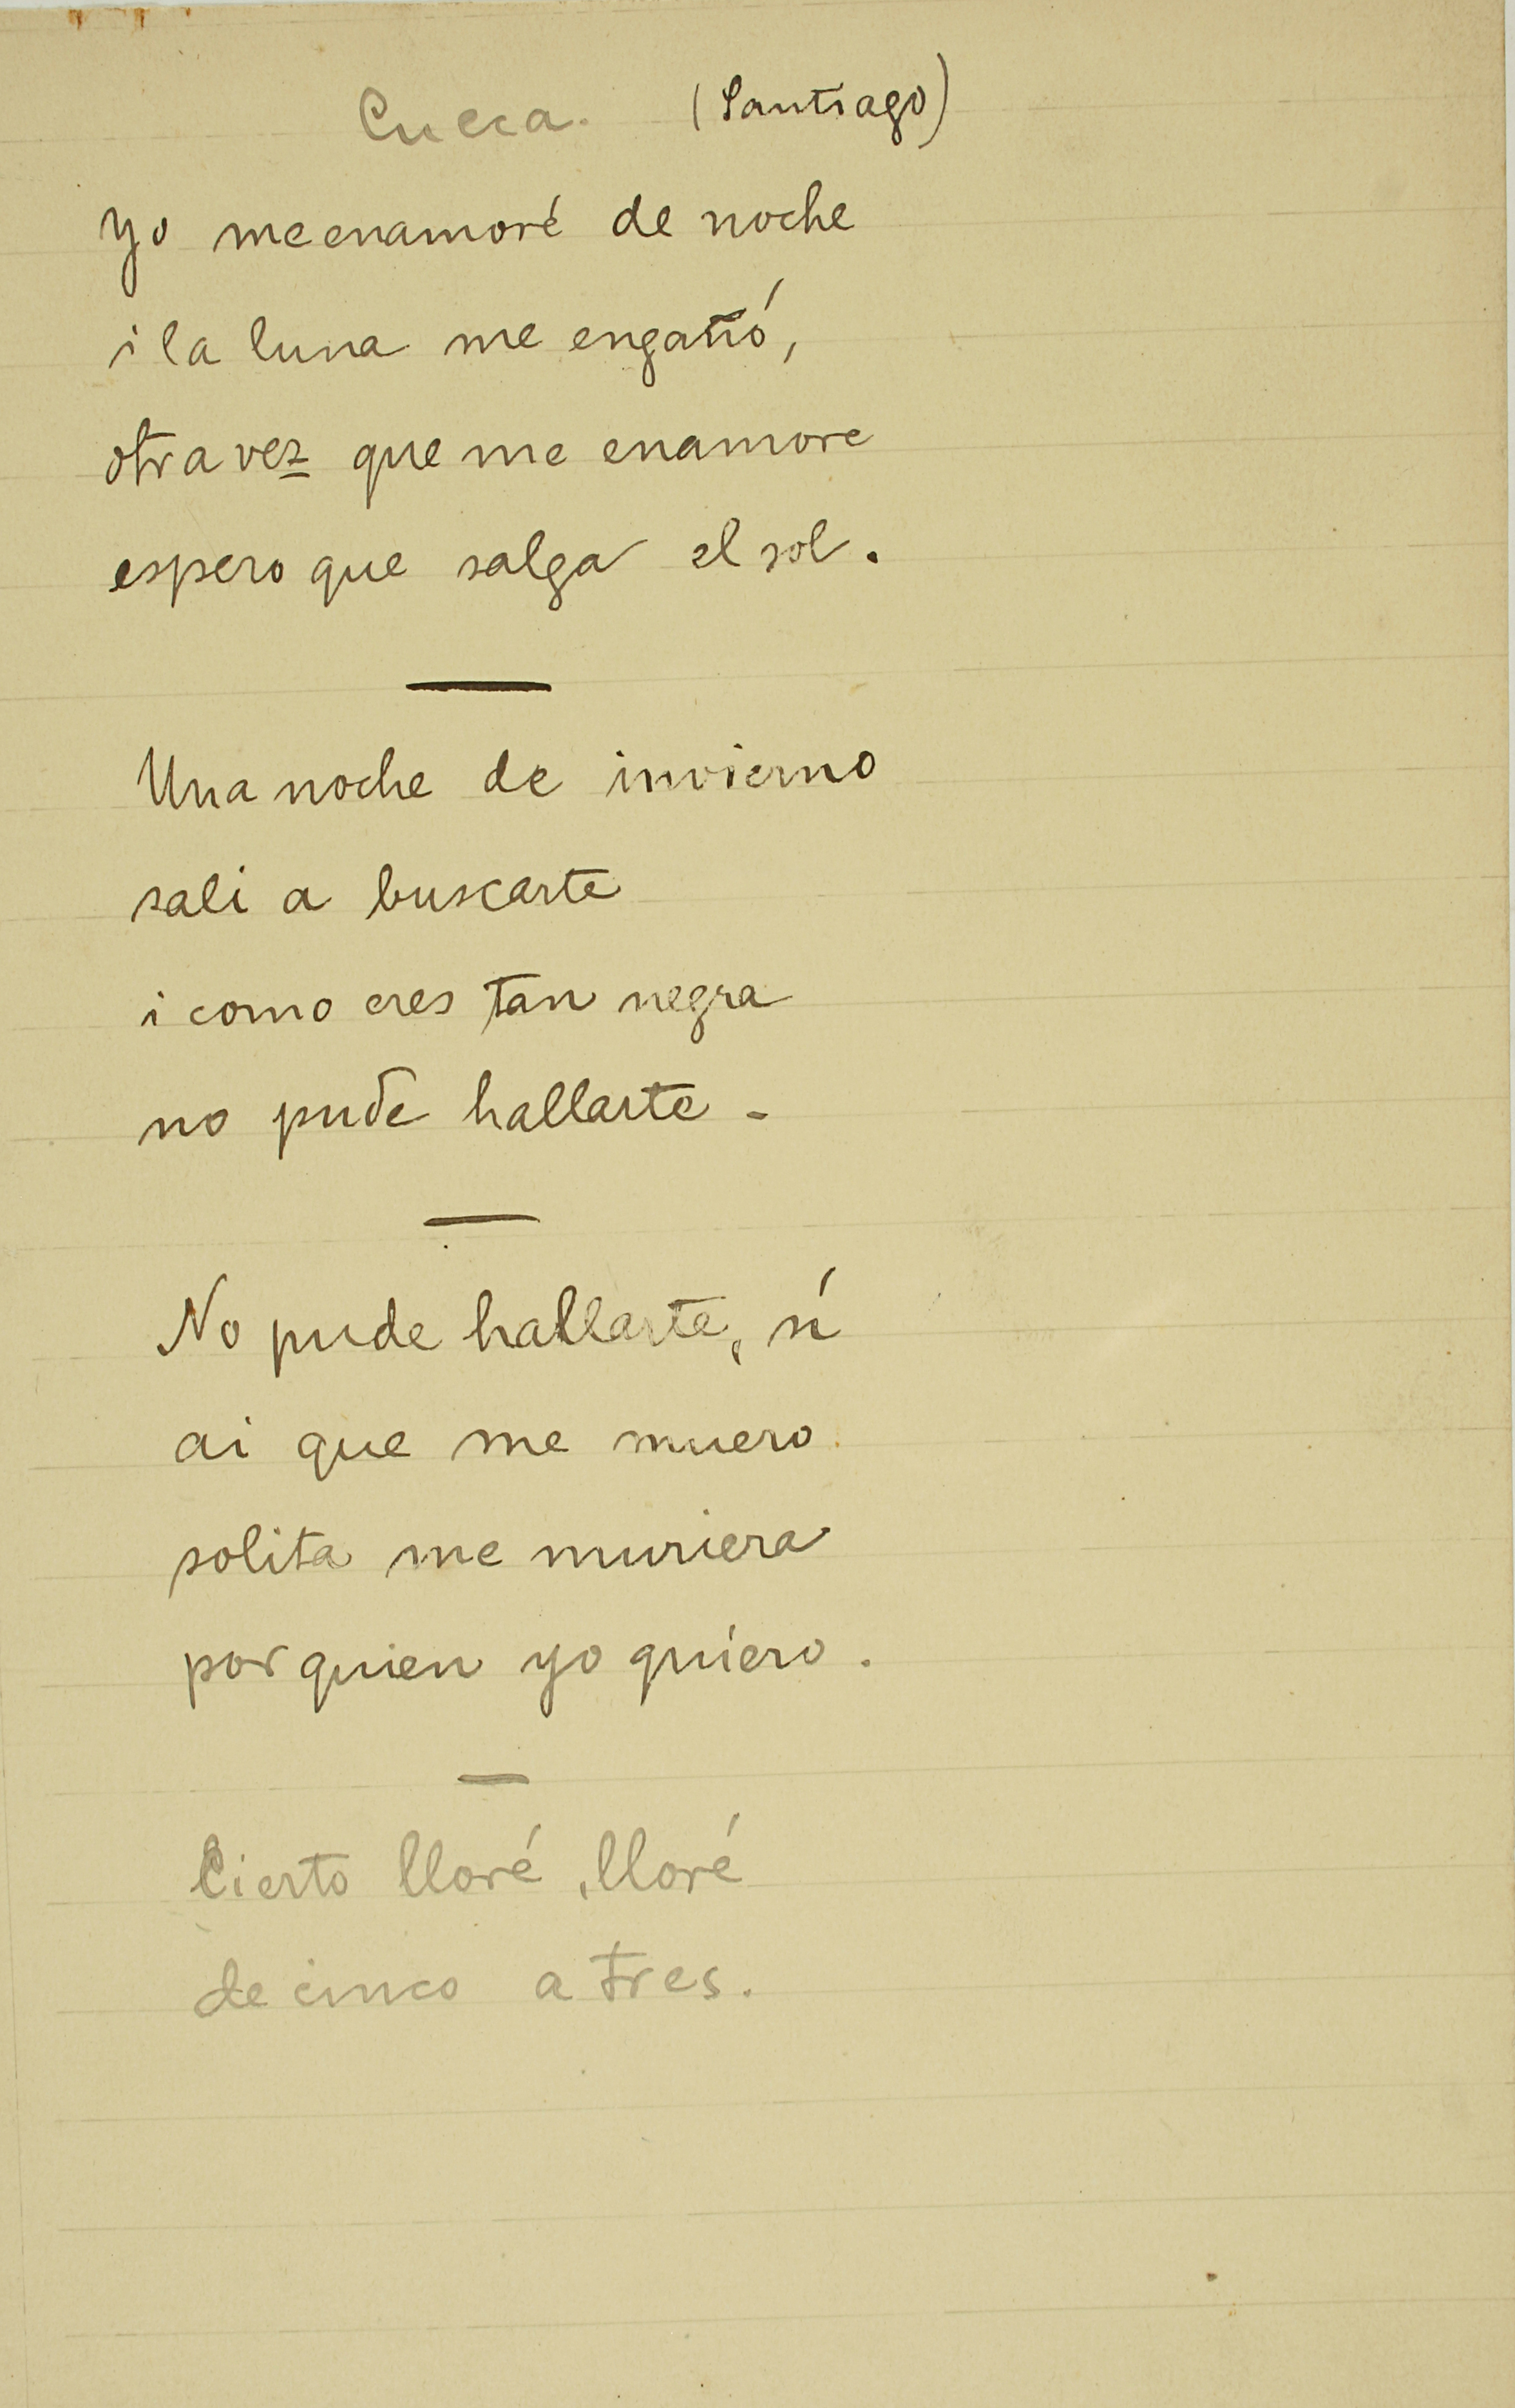 Cueca. (Santiago)
Yo me enamoré de noche
i la luna me engañó,
otra vez que me enamore
espero que salga el sol.
Una noche de invierno
sali a buscarte
i como eres tan negra
no pude hallarte -
No pude hallarte, sí
ai que me muero
solita me muriera
por quien yo quiero.
Cierto lloré, lloré
de cinco a tres.